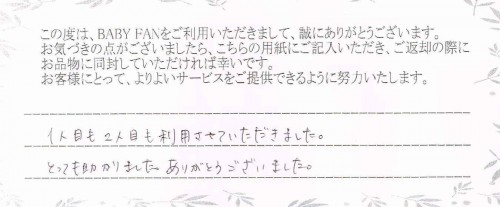 この度は、BABY FANをご利用いただきまして、誠にありがとうございます。
お気づきの点がございましたら、こちらの用紙にご記入いただき、ご返却の際に
お品物に同封していただければ幸いです。
お客様にとって、よりよいサービスをご提供できるように努力いたします。
1人目も2人目も利用させていただきました。
とっても助かりました。ありがとうございました。